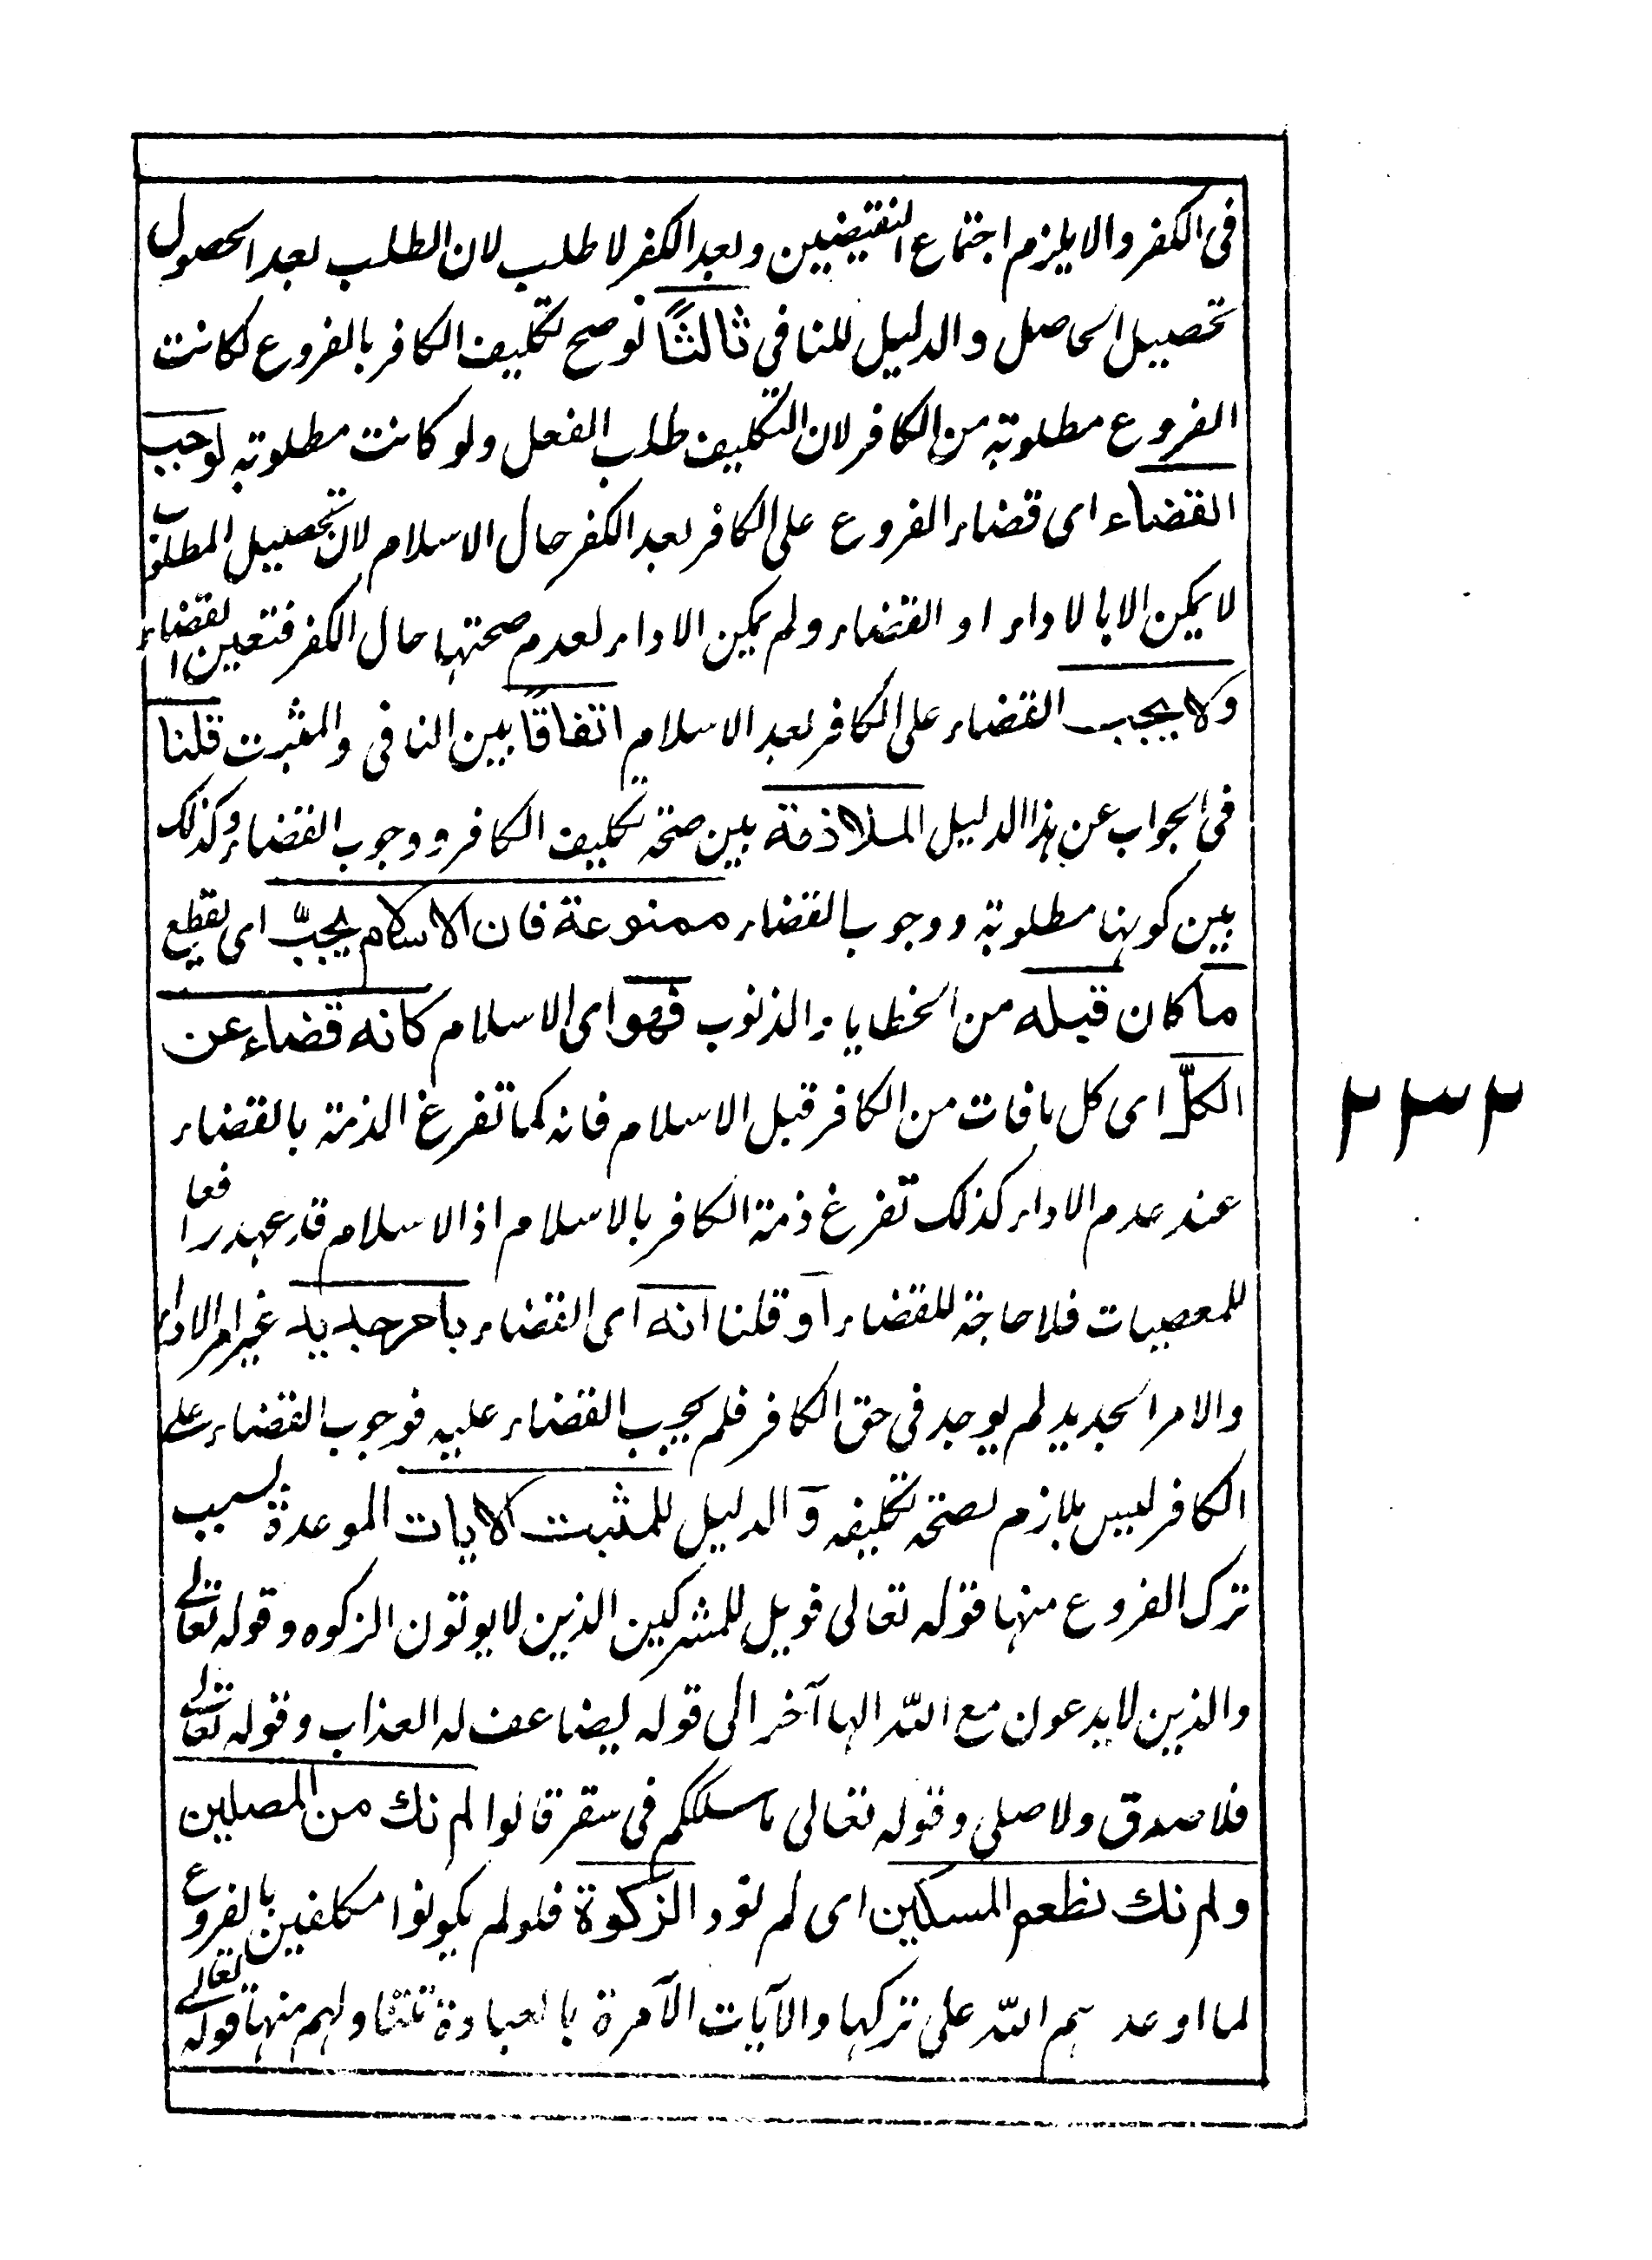 فى الكفر والا يلزم اجتماع النقيضين وبعد الكفر لا طلب لان الطلب بعد الحصول
تحصيل الحاصل والدليل للنافى ثالثًا لو صح تكليف الكافر بالفروع لكانت
الفروع مطلوبة من الكافر لان التكليف طلب الفعل ولو كانت مطلوبة لوجب
القضاء اى قضاء الفروع على الكافر بعد الكفر حال الاسلام لان تحصيل المطلوب
لا يمكن الا بالاداء او القضاء ولم يمكن الاداء لعدم صحتها حال الكفر فتعين القضاء
ولا يجب القضاء على الكافر بعد الاسلام اتفاقًا بين النافى والمثبت قلنا
فى الجواب عن هذا الدليل الملازمة بين صحة تكليف الكافر ووجوب القضاء وكذلك
بين كونها مطلوبة ووجوب القضاء ممنوعة فان الاسلام يجبّ اى يقطع
ما كان قبله من الخطايا والذنوب فهو اى الاسلام كانه قضاء عن
الكلّ اى كل ما فات من الكافر قبل الاسلام فانه كما تفرغ الذمة بالقضاء
عند عدم الاداء كذلك تفرغ ذمة الكافر بالاسلام اذ الاسلام قد عهد رافعا
للمعصيات فلا حاجة للقضاء او قلنا انه اى القضاء بامر جديد غير امر الاداء
والامر الجديد لم يوجد فى حق الكافر فلم يجب القضاء عليه فوجوب القضاء على
الكافر ليس بلازم لصحة تكليفه و الدليل للمثبت الايات الموعدة بسبب
ترك الفروع منها قوله تعالى فويل للمشركين الذين لا يوتون الزكوه وقوله تعالى
والذين لا يدعون مع الله الها آخر الى قوله يضاعف له العذاب وقوله تعالى
فلا صدق ولا صلى وقوله تعالى ما سلككم فى سقر قالوا لم نك من المصلين
ولم نك نطعم المسكين اى لم نود الزكوة فلو لم يكونوا مكلفين بالفروع
لما اوعدهم الله على تركها والآيات الآمرة بالعبادة تتناولهم منها قوله تعالى
٢٣٢